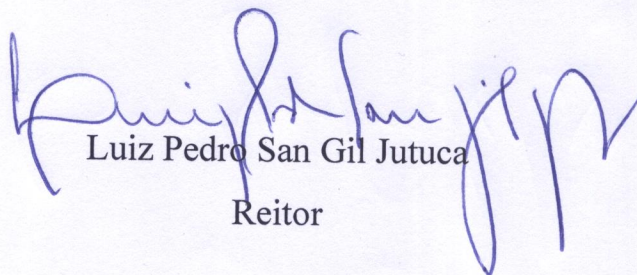 Luiz Pedro San Gil Jutuca
Reitor